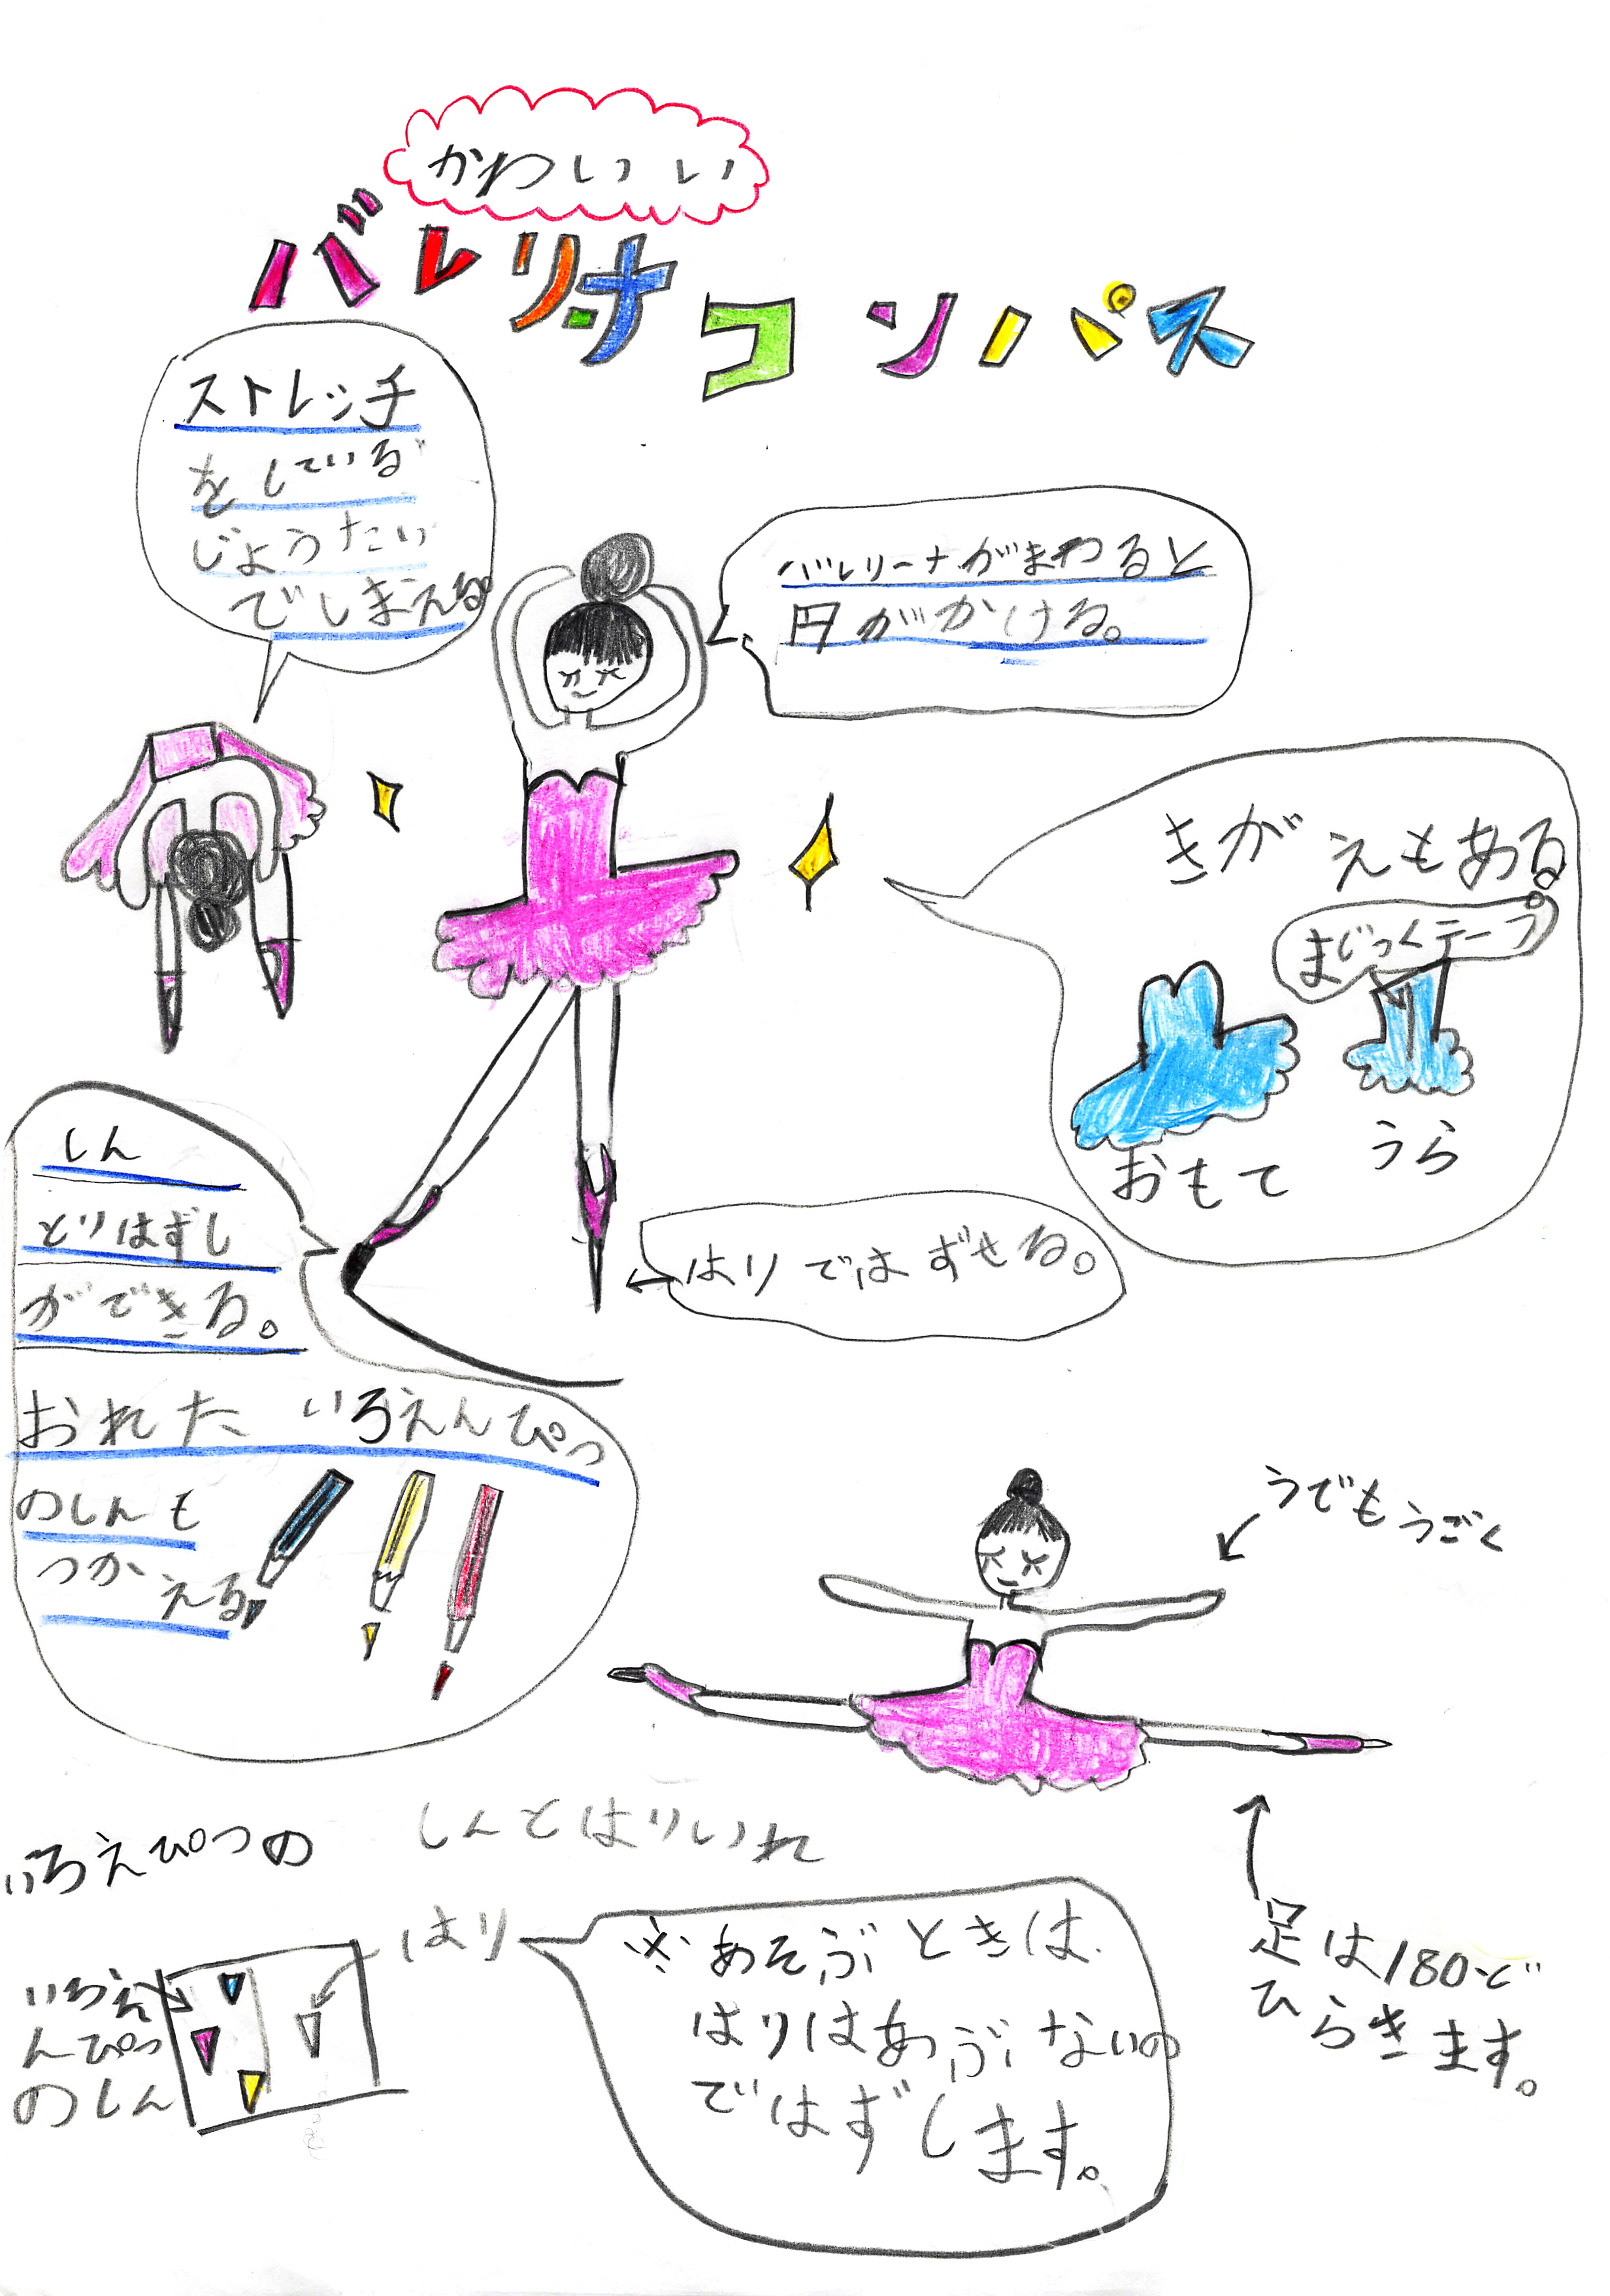 かわいい
バレリーナ
コンパス
ストレッチ
をしている
じょうたい
でしまえる。
バレリーナがまわると
円がかける。
きがえもある。
まじっくテープ
おもて
うら
しん
とりはずし
ができる。
おれたいろえんぴつ
のしんも
つかえる。
はりではずせる。
うでもうごく
足は180ど
ひらきます。
いろえぴつの しんとはりいれ
はり
いろえ
んぴつ
のしん
※あそぶときは
はりはあぶないの
ではずします。